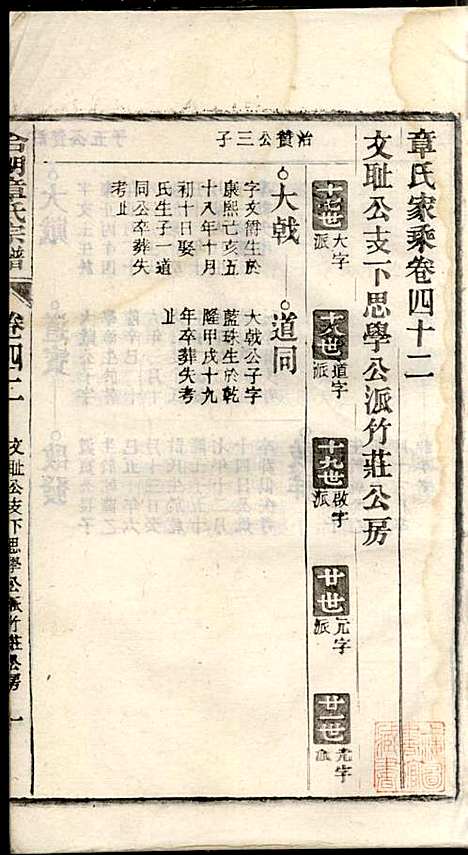 章氏家乘卷四十二
文耻公支下思學公派竹莊公房
十七世 大字派
十八世 道字派
十九世 啟字派
廿世 元字派
廿一世 光字派
治贊公三子
大戟
字文爵生於
康熙己亥五
十八年十月
初十日娶
氏生子一道
同公卒葬失
考止
道同
大戟公子字
藍珠生於乾
隆甲戌十九
年卒葬失考
止
合朗章氏宗譜
卷四十二
文耻公支下思學公派竹莊公房
一